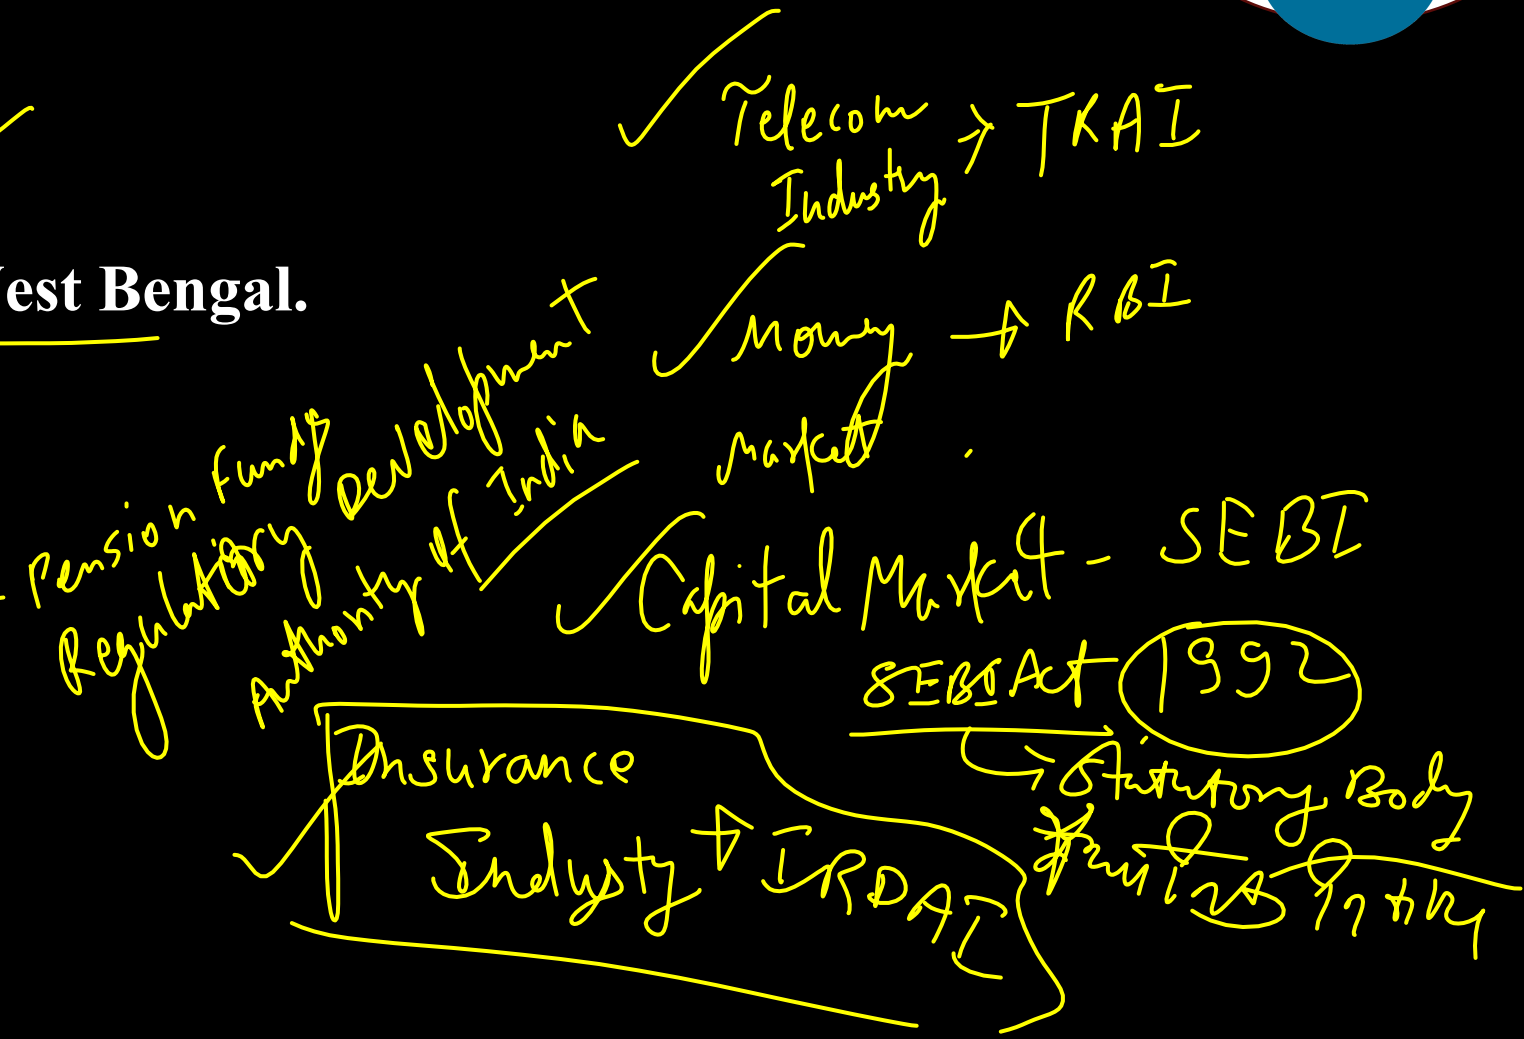 Telecom → TRAI
Industry
est Bengal.
Money → RBI
Market
Pension Funds
Regulatory Development
Authority of India
Capital Market - SEBI
SEBI Act 1992
→ Statutory Body
Insurance
Industry → IRDAI